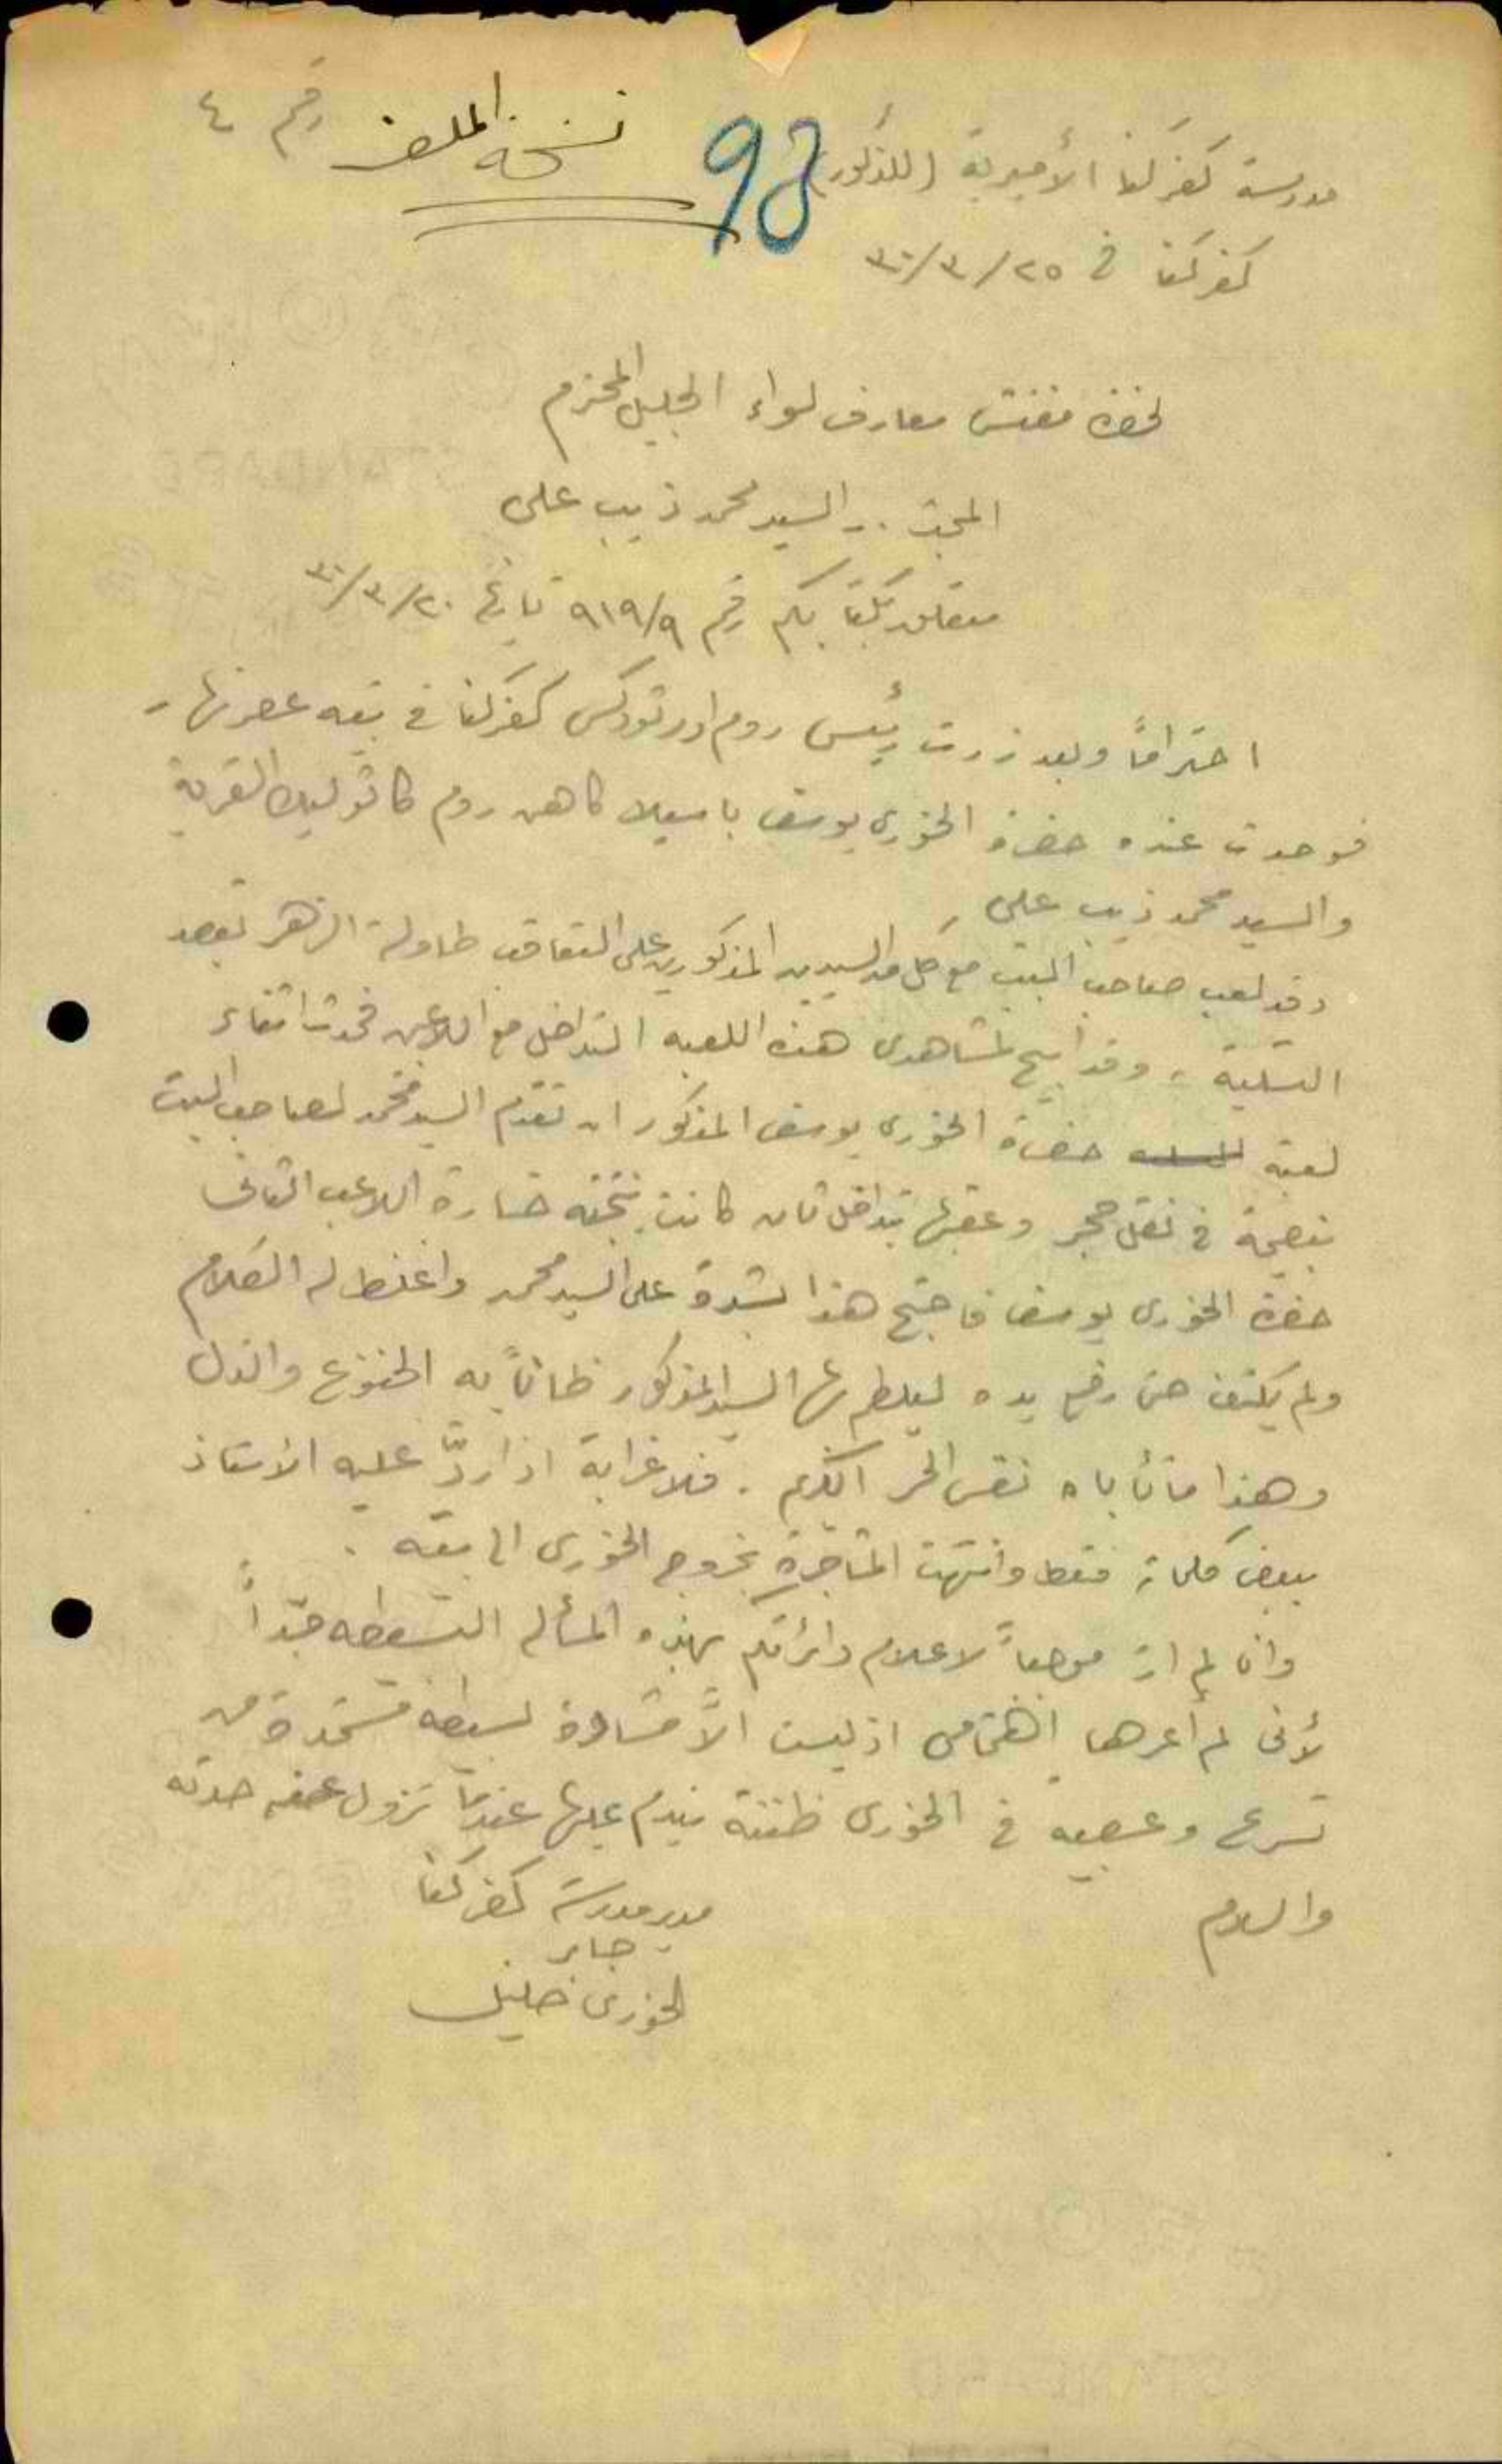 نسخة الملف رقم ٤
98
مدرسة كفركنا الأميرية (للذكور)
كفركنا في ٢٥/٣/٣٠
لحضرة مفتش معارف لواء الجليل المحترم
المبحث .. السيد محمد ذيب علي
متعلق بكتابكم رقم ٩١٩/٩ تاريخ ٢٠/٣/٣٠
احتراماً وبعد زرت رئيس روم اورتودكس كفركنا في بيته عصر نهار
فوجدت عنده حضرة الخوري يوسف باسيلا كاهن روم كاثوليك القرية
والسيد محمد ذيب علي
وقد لعب صاحب البيت مع كل من السيدين المذكورين على التعاقب طاولة الزهر بقصد
التسلية، وقد ابيح لمشاهدي هذه اللعبة التداخل مع اللاعبين فحدث اثناء
لعبة حضرة الخوري يوسف المذكور ان تقدم السيد محمد لصاحب البيت
بنصيحة في نقل حجر وعقبها تداخل ثان كانت نتيجته خسارة اللاعب الثاني
حضرة الخوري يوسف فاحتج هذا بشدة على السيد محمد واغلظ له الكلام
ولم يكتف حتى رفع يده ليلطم بها السيد المذكور ظاناً به الخنوع والذل
وهذا ما تأباه نفس الحر الكريم . فلا غرابة اذا ردّ عليه الاستاذ
ببعض كلمات فقط وانتهت المشاجرة بخروج الخوري الى بيته .
وانا لم ار موجباً لاعلام دائرتكم بهذه المسألة البسيطة جداً
لأني لم أعرها اهتمامي اذ ليست الاّ مشادة بسيطة مستمدة من
تسرع وعصبية في الخوري ظننته يندم عليها عندما تزول عنه حدته
والسلام
مدير مدرسة كفركنا
جابر
الخوري خليل